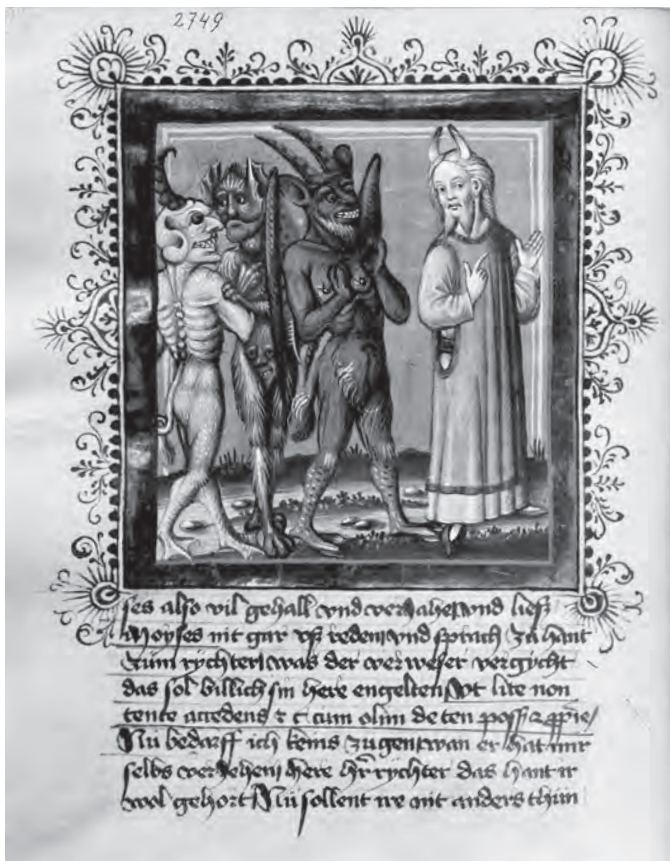 2749
ses also vil gehall vnd verjahet vnd liesz
Moyses nit gar vsz reden vnd sprach zu hant
zum rychter was der verweser vergycht
das sol billich sin here engelten vt lite non
cum olim de
Nu bedarff ich keins zugen wan er hat mir
selbs verjehen here rychter das hant ir
wol gehort Nu sollent ir nit anders thun